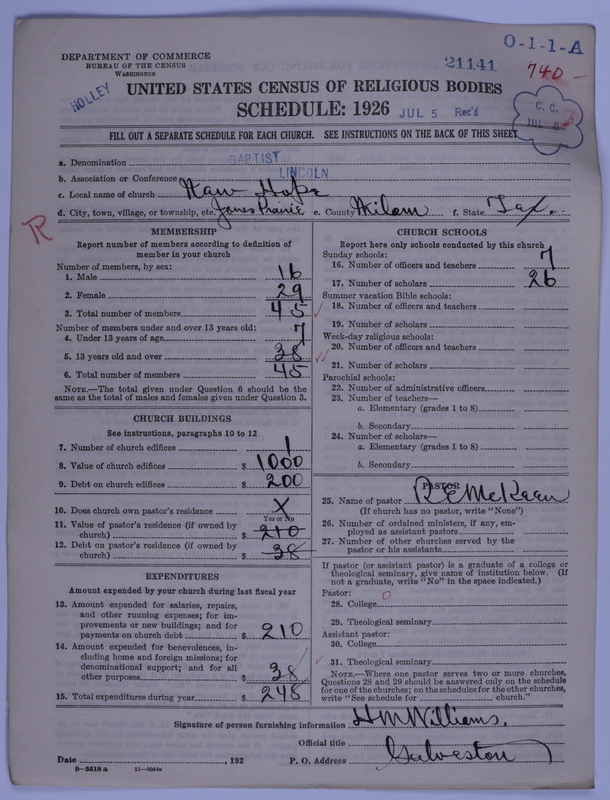 O-1-1-A
DEPARTMENT OF COMMERCE
BUREAU OF THE CENSUS
WASHINGTON
21141
740 -
HOLLEY
UNITED STATES CENSUS OF RELIGIOUS BODIES
SCHEDULE: 1926
JUL 5 Rec'd
C. C.
JUL 8
FILL OUT A SEPARATE SCHEDULE FOR EACH CHURCH. SEE INSTRUCTIONS ON THE BACK OF THIS SHEET
a. Denomination BAPTIST
b. Association or Conference LINCOLN
c. Local name of church Hope
d. City, town, village, or township, etc. Jones Prairie e. County Milam f. State Tex.
R
MEMBERSHIP
Report number of members according to definition of
member in your church
Number of members, by sex:
1. Male 16
2. Female 29
3. Total number of members 45
Number of members under and over 13 years old:
4. Under 13 years of age 7
5. 13 years old and over 38
6. Total number of members 45
NOTE.—The total given under Question 6 should be the
same as the total of males and females given under Question 3.
CHURCH BUILDINGS
See instructions, paragraphs 10 to 12
7. Number of church edifices 1
8. Value of church edifices $ 1000
9. Debt on church edifices $ 200
10. Does church own pastor's residence X
Yes or No
11. Value of pastor's residence (if owned by
church) $ 210
12. Debt on pastor's residence (if owned by
church) $ 38
EXPENDITURES
Amount expended by your church during last fiscal year
13. Amount expended for salaries, repairs,
and other running expenses; for im-
provements or new buildings; and for
payments on church debt $ 210
14. Amount expended for benevolences, in-
cluding home and foreign missions; for
denominational support; and for all
other purposes $ 38
15. Total expenditures during year $ 248
CHURCH SCHOOLS
Report here only schools conducted by this church
Sunday schools:
16. Number of officers and teachers 7
17. Number of scholars 26
Summer vacation Bible schools:
18. Number of officers and teachers
19. Number of scholars
Week-day religious schools:
20. Number of officers and teachers
21. Number of scholars
Parochial schools:
22. Number of administrative officers
23. Number of teachers—
a. Elementary (grades 1 to 8)
b. Secondary
24. Number of scholars—
a. Elementary (grades 1 to 8)
b. Secondary
PASTOR
25. Name of pastor R E McKeen
(If church has no pastor, write "None")
26. Number of ordained ministers, if any, em-
ployed as assistant pastors
27. Number of other churches served by the
pastor or his assistants
If pastor (or assistant pastor) is a graduate of a college or
theological seminary, give name of institution below. (If
not a graduate, write "No" in the space indicated.)
Pastor:
28. College
29. Theological seminary
Assistant pastor:
30. College
31. Theological seminary
NOTE.—Where one pastor serves two or more churches,
Questions 28 and 29 should be answered only on the schedule
for one of the churches; on the schedules for the other churches,
write "See schedule for church."
Signature of person furnishing information H M Williams.
Official title
Date , 192 P. O. Address Galveston
8—5518 a 11—9054a